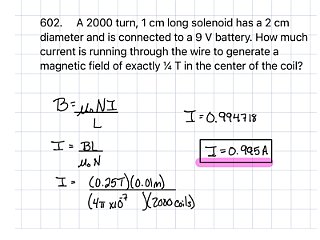 602. A 2000 turn, 1 cm long solenoid has a 2 cm
diameter and is connected to a 9 V battery. How much
current is running through the wire to generate a
magnetic field of exactly ¼ T in the center of the coil?
B = μ₀NI / L
I = BL / μ₀N
I = (0.25T)(0.01m) / (4π x10⁻⁷)(2000 coils)
I = 0.994718
I = 0.995A